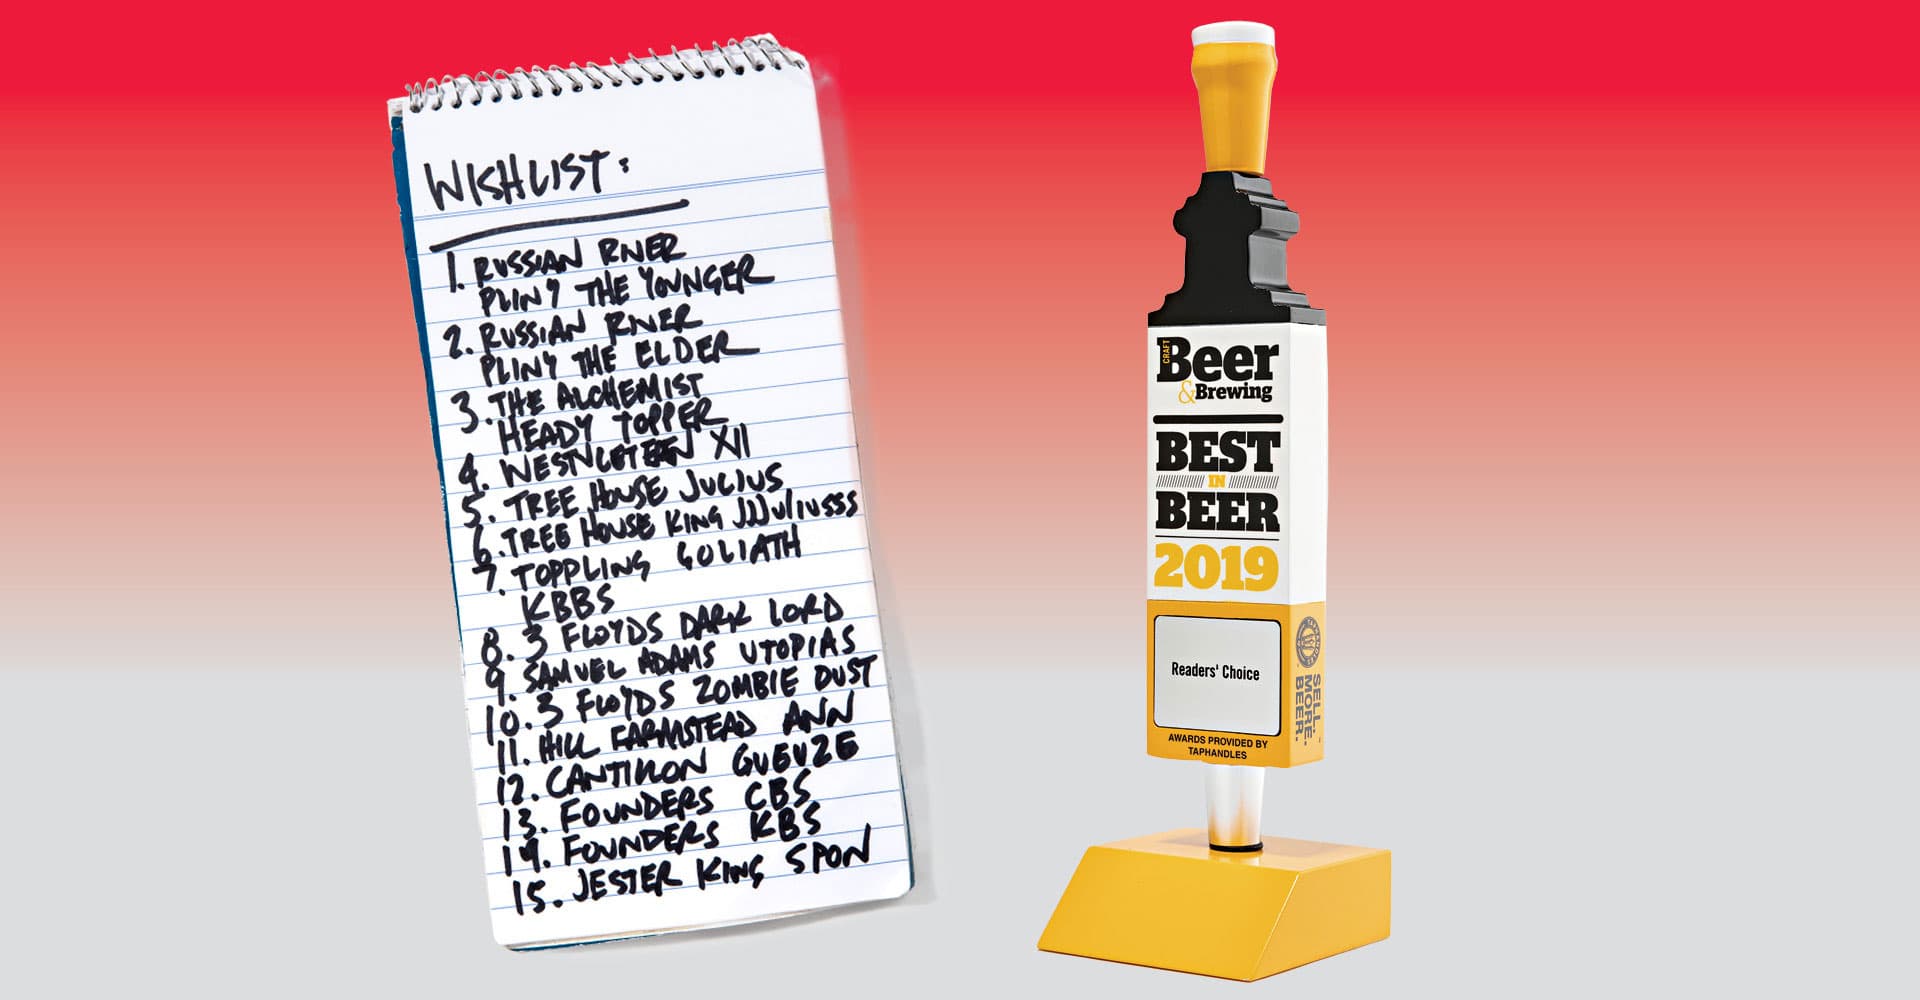 WISHLIST:
1. RUSSIAN RIVER
PLINY THE YOUNGER
2. RUSSIAN RIVER
PLINY THE ELDER
3. THE ALCHEMIST
HEADY TOPPER
4. WESTVLETEREN XII
5. TREE HOUSE JULIUS
6. TREE HOUSE KING JJJULIUSSS
7. TOPPLING GOLIATH
KBBS
8. 3 FLOYDS DARK LORD
9. SAMUEL ADAMS UTOPIAS
10. 3 FLOYDS ZOMBIE DUST
11. HILL FARMSTEAD ANN
12. CANTILLON GUEUZE
13. FOUNDERS CBS
14. FOUNDERS KBS
15. JESTER KING SPON
CRAFT
Beer
&Brewing
BEST
IN
BEER
2019
Readers' Choice
AWARDS PROVIDED BY
TAPHANDLES
SELL.
MORE.
BEER.